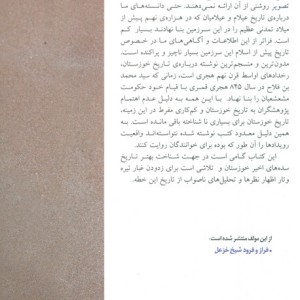 تصویر روشنی از آن ارائه نمی‌دهند. حتی دانسته‌های ما
درباره‌ی تاریخ عیلام و عیلامیان که در هزاره‌ی نهم پیش از
میلاد تمدنی عظیم را در این سرزمین بنا نهادند بسیار کم
است. فراتر از این اطلاعات و آگاهی‌های ما در خصوص
تاریخ پیش از اسلام این سرزمین بسیار ناچیز و پراکنده است.
مدون‌ترین و منسجم‌ترین نوشته درباره‌ی تاریخ خوزستان،
رخدادهای اواسط قرن نهم هجری است، زمانی که سید محمد
بن فلاح در سال ۸۴۵ هجری قمری با قیام خود حکومت
مشعشعیان را بنا نهاد. با این همه به دلیل عدم اهتمام
پژوهشگران به تاریخ خوزستان و کم‌کاری مفرط در این زمینه،
تاریخ خوزستان برای بسیاری نا شناخته باقی مانده است. به
همین دلیل معدود کتب نوشته شده نتوانسته‌اند واقعیت
رویدادها را آن طور که بوده برای خوانندگان روایت کنند.
این کتاب گامی است در جهت شناخت بهتر تاریخ
سده‌های اخیر خوزستان و تلاشی است برای زدودن غبار تیره
وتار اظهار نظرها و تحلیل‌های ناصواب از تاریخ این خطه.
از این مولف منتشر شده است:
• فراز و فرود شیخ خزعل